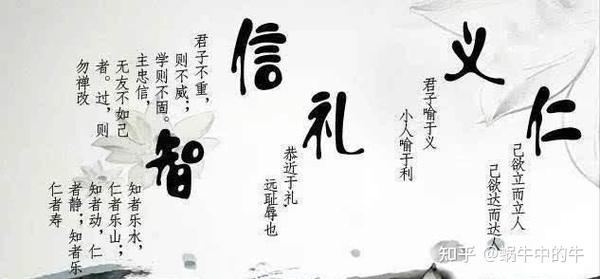 仁
己欲立而立人
己欲达而达人
义
君子喻于义
小人喻于利
礼
恭近于礼,
远耻辱也
信
君子不重,
则不威;
学则不固。
主忠信,
无友不如己
者。过,则
勿禅改
智
知者乐水,
仁者乐山;
知者动,仁
者静;知者乐
仁者寿
知乎 @蜗牛中的牛